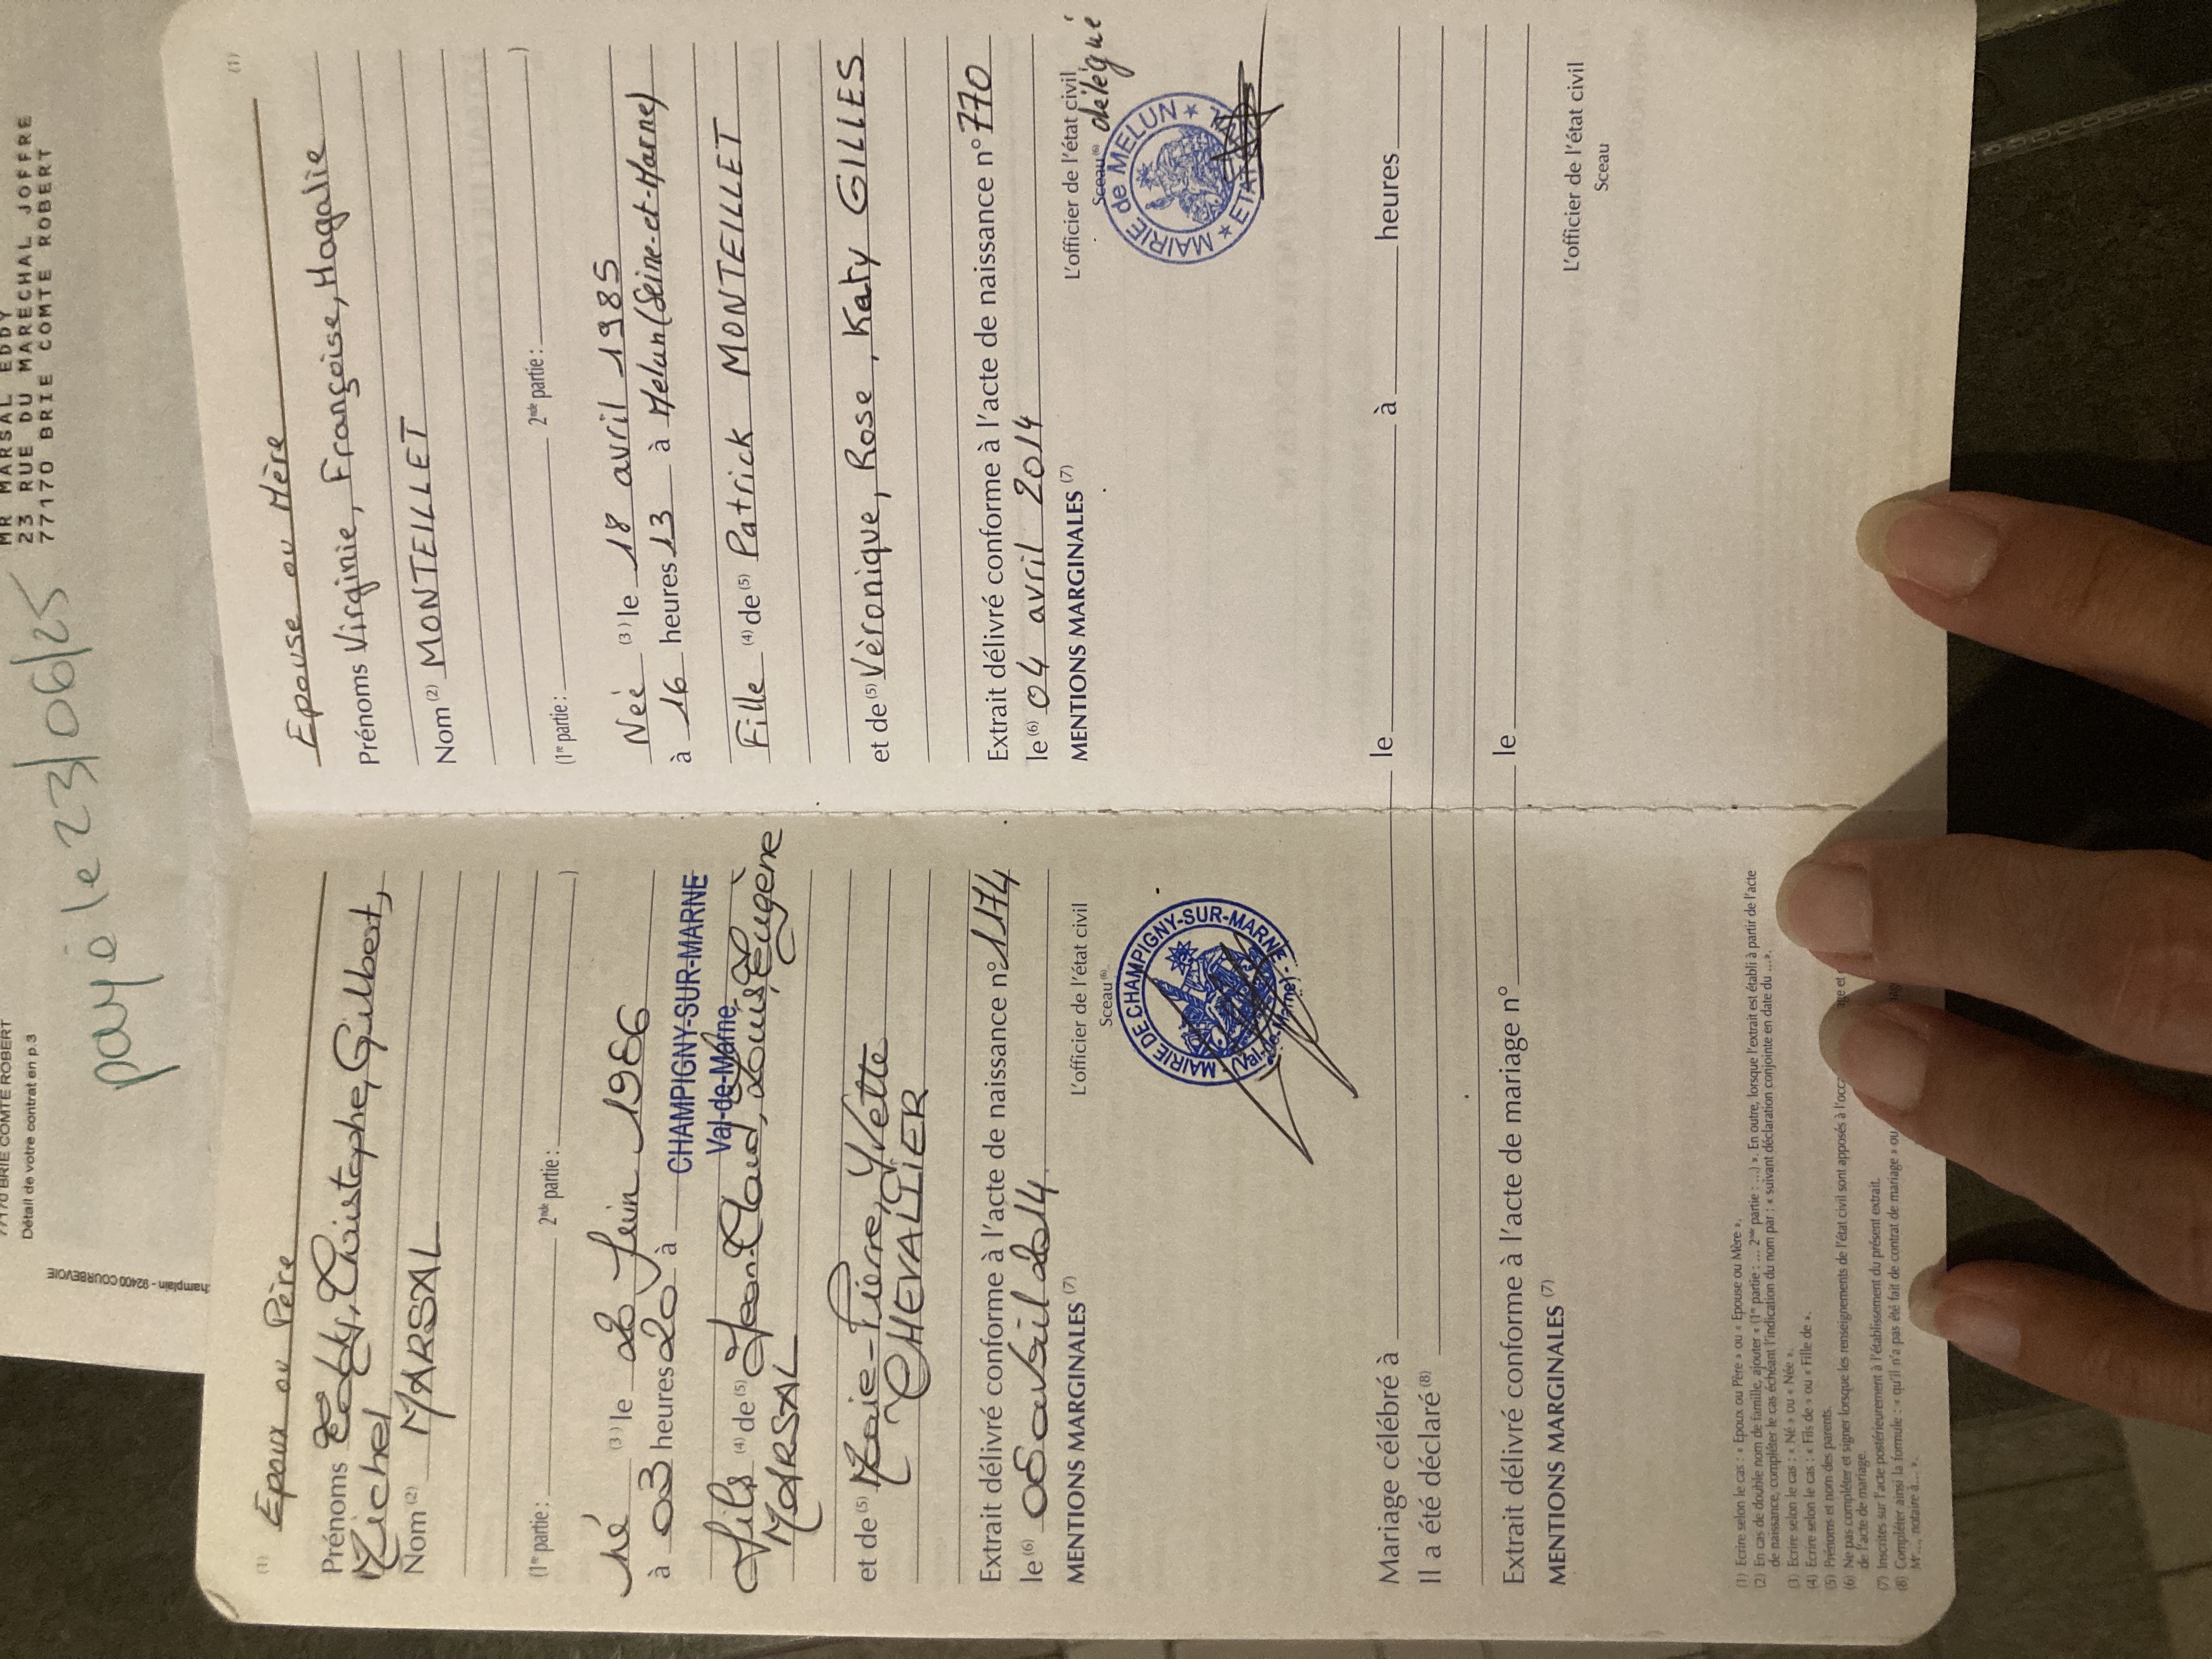 MR MARSAL EDDY
23 RUE DU MARECHAL JOFFRE
77170 BRIE COMTE ROBERT
77170 BRIE COMTE ROBERT
Détail de votre contrat en p.3
92400 COURBEVOIE
payé le 23/06/25
(1) Epoux ou Père
Prénoms Eddy, Christophe, Gilbert,
Michel
Nom (2) MARSAL
(1re partie : 2nde partie : )
Né (3) le 20 juin 1986
à 03 heures 20 à CHAMPIGNY-SUR-MARNE
Val-de-Marne
Fils (4) de (5) Jean-Claud, Louis, Eugène
MARSAL
et de (5) Marie-Pierre, Yvette
CHEVALLIER
Extrait délivré conforme à l'acte de naissance n° 1174
le (6) 08 avril 2014
L'officier de l'état civil
Sceau (6)
MENTIONS MARGINALES (7)
MAIRIE DE CHAMPIGNY-SUR-MARNE
(Val-de-Marne)
Epouse ou Mère (1)
Prénoms Virginie, Françoise, Magalie
Nom (2) MONTEILLET
(1re partie : 2nde partie : )
Née (3) le 18 avril 1985
à 16 heures 13 à Melun (Seine-et-Marne)
Fille (4) de (5) Patrick MONTEILLET
et de (5) Vèronique, Rose, Katy GILLES
Extrait délivré conforme à l'acte de naissance n° 770
le (6) 04 avril 2014
L'officier de l'état civil
délégué
Sceau (6)
MENTIONS MARGINALES (7)
MAIRIE de MELUN
ETAT
Mariage célébré à le à heures
Il a été déclaré (8)
Extrait délivré conforme à l'acte de mariage n° le
MENTIONS MARGINALES (7)
L'officier de l'état civil
Sceau
(1) Ecrire selon le cas : « Epoux ou Père » ou « Epouse ou Mère ».
(2) En cas de double nom de famille, ajouter « (1re partie : ... 2nde partie : ...) ». En outre, lorsque l'extrait est établi à partir de l'acte
de naissance, compléter le cas échéant l'indication du nom par : « suivant déclaration conjointe en date du ... ».
(3) Ecrire selon le cas : « Né » ou « Née ».
(4) Ecrire selon le cas : « Fils de » ou « Fille de ».
(5) Prénoms et nom des parents.
(6) Ne pas compléter et signer lorsque les renseignements de l'état civil sont apposés à l'occ
de l'acte de mariage.
(7) Inscrites sur l'acte postérieurement à l'établissement du présent extrait.
(8) Compléter ainsi la formule : « qu'il n'a pas été fait de contrat de mariage » ou
Me..., notaire à... ».